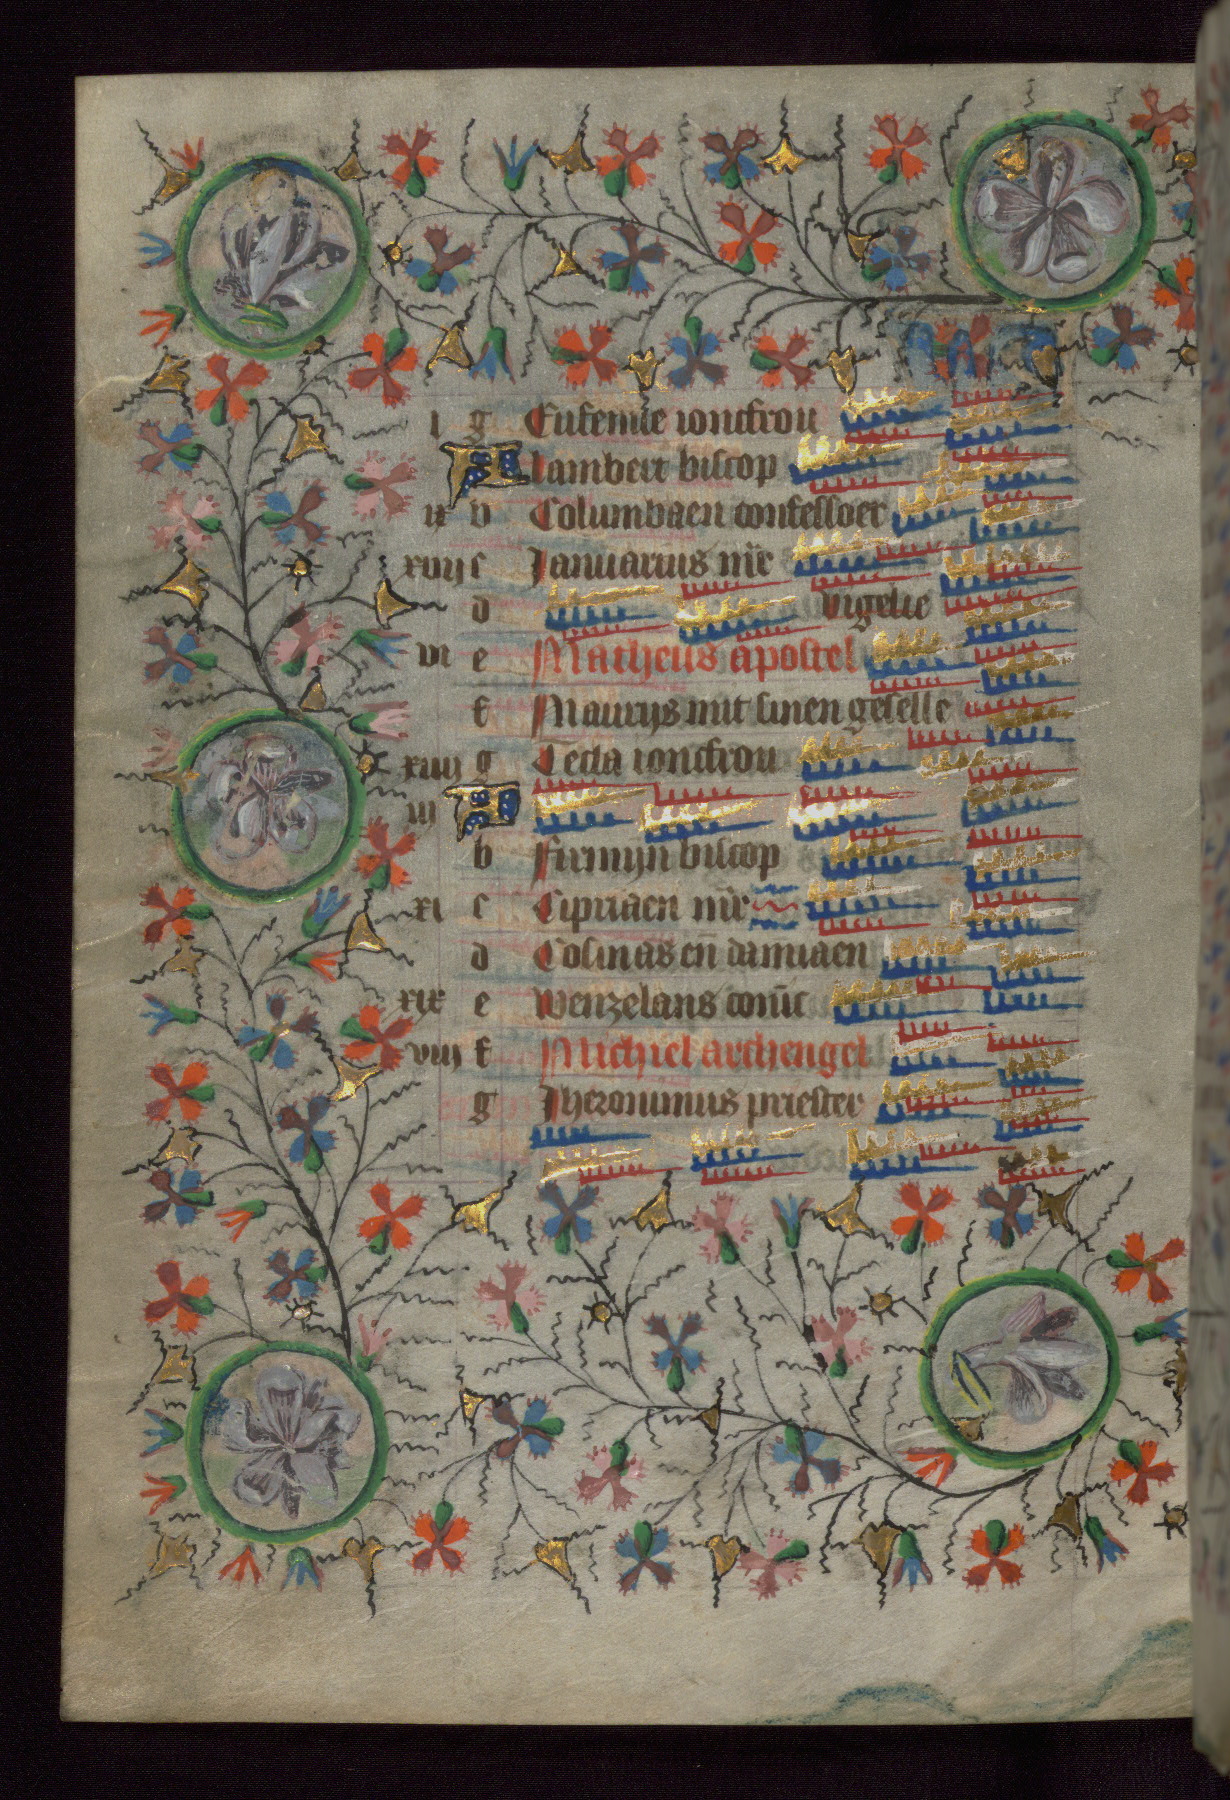 i g Eufemie ioncfrou
A lambert biscop
ix b Columbaen confessoer
xvij c Januarius mr̄
d vigelie
vi e Matheus apostel
f Maurijs mit sinen geselle
xiiij g Tecla ioncfrou
iij A
b Firmijn biscop
xi c Cipriaen mr̄
d Cosmas en̄ damiaen
xix e Wenzelans
viij f Michiel archengel
g Jheronimus priester